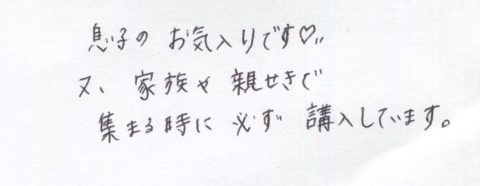 息子の お気入りです♡〃
又、家族や親せきで
集まる時に必ず講入しています。